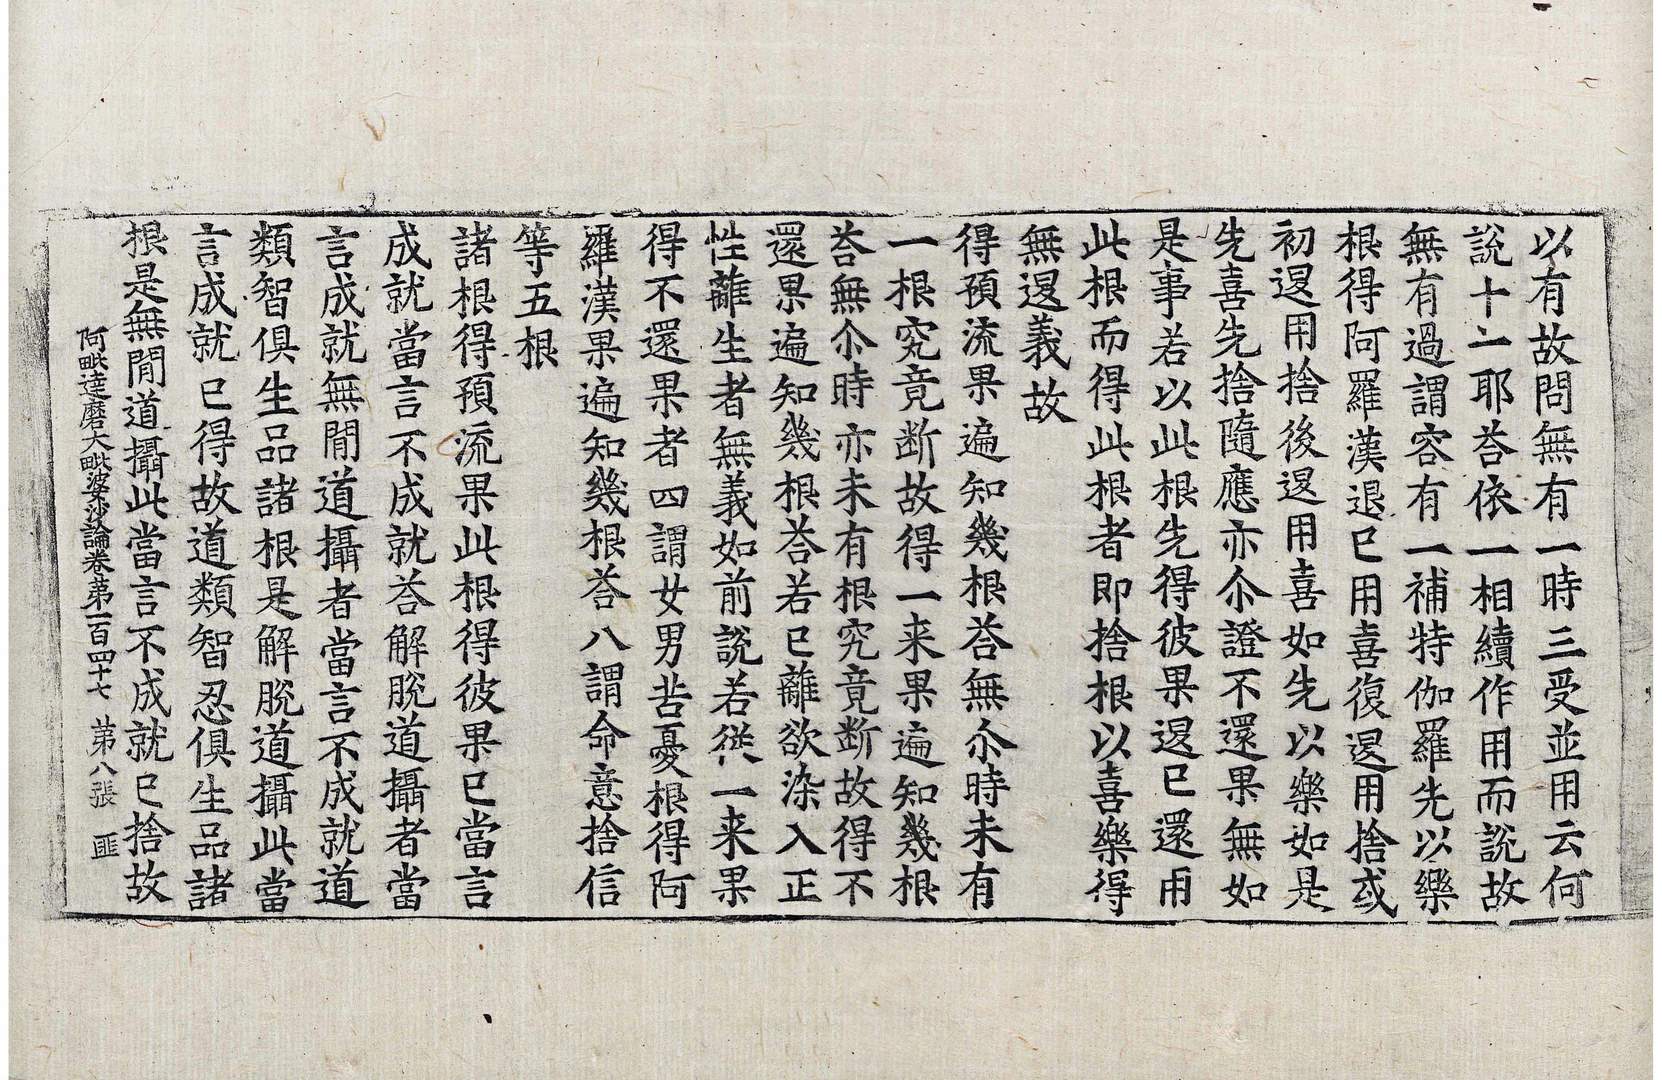 以有故問無有一時三受並用云何
說十二耶荅依一相續作用而說故
無有過謂容有一補特伽羅先以樂
根得阿羅漢退已用喜復退用捨或
初退用捨後退用喜如先以樂如是
先喜先捨隨應亦尒證不還果無如
是事若以此根先得彼果退已還用
此根而得此根者即捨根以喜樂得
無退義故
得預流果遍知幾根荅無尒時未有
一根究竟断故得一来果遍知幾根
荅無尒時亦未有根究竟断故得不
還果遍知幾根荅若已離欲染入正
性離生者無義如前說若從一来果
得不還果者四謂女男苦憂根得阿
羅漢果遍知幾根荅八謂命意捨信
等五根
諸根得預流果此根得彼果已當言
成就當言不成就荅解脫道攝者當
言成就無閒道攝者當言不成就道
類智俱生品諸根是解脫道攝此當
言成就已得故道類智忍俱生品諸
根是無閒道攝此當言不成就已捨故
阿毗達磨大毗婆沙論卷第一百四十七　第八張　匪